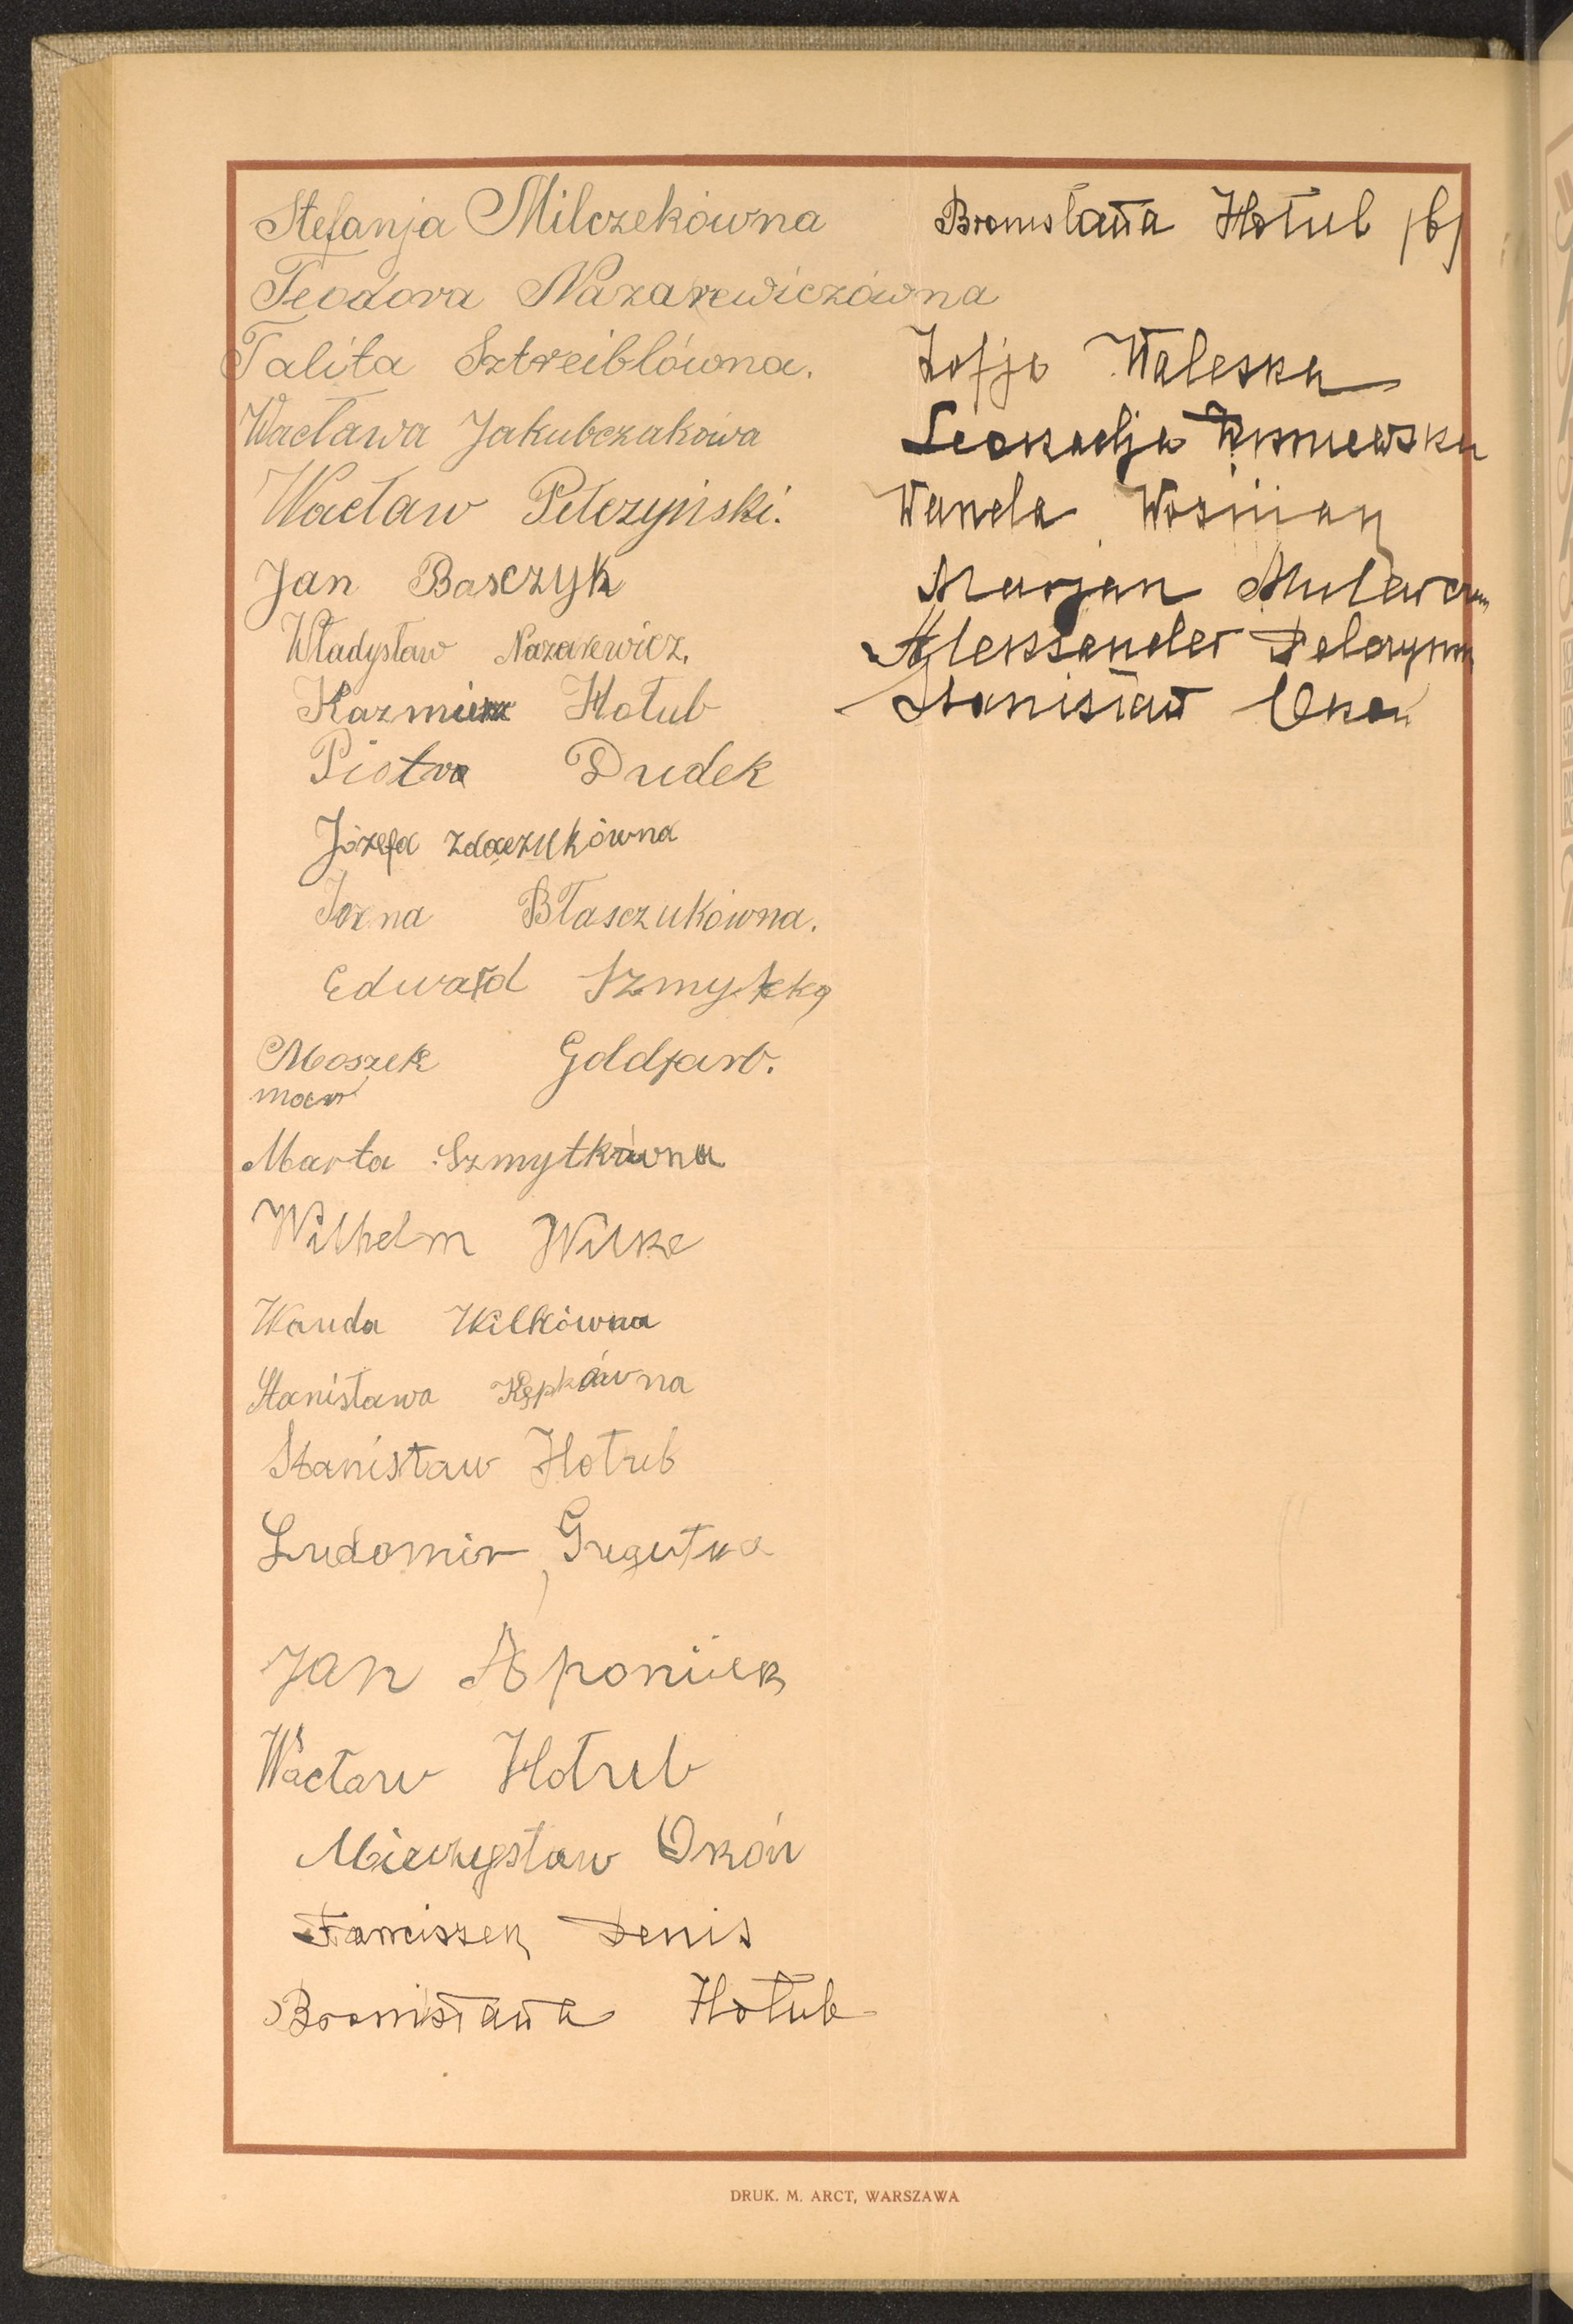 Stefanja Milczekówna
Teodora Nazarewiczówna
Talita Sztreiblówna.
Wacława Jakubczakówa
Wacław Pełczyński.
Jan Basczyk
Władysław Nazarewicz.
Kazmierz Hołub
Piotr Dudek
Józefa Zdaczukówna
Irena Błasczukówna.
Edward Szmytkę
Moszek Goldfarb.
Marta Szmytkówna
Wilhelm Wilke
Wanda Wilkówna
Stanisława Kępkówna
Stanisław Hołub
Ludomir
Jan Aponiuk
Wacław Hołub
Mieczysław Okoń
Franciszek Denis
Bronisława Hołub
Bronisława Hołub /b/
Zofja Waleska
Leokadja Wisniewska
Wanda Wośnian
Marjan
Aleksander
Stanisław Okoń
DRUK. M. ARCT, WARSZAWA